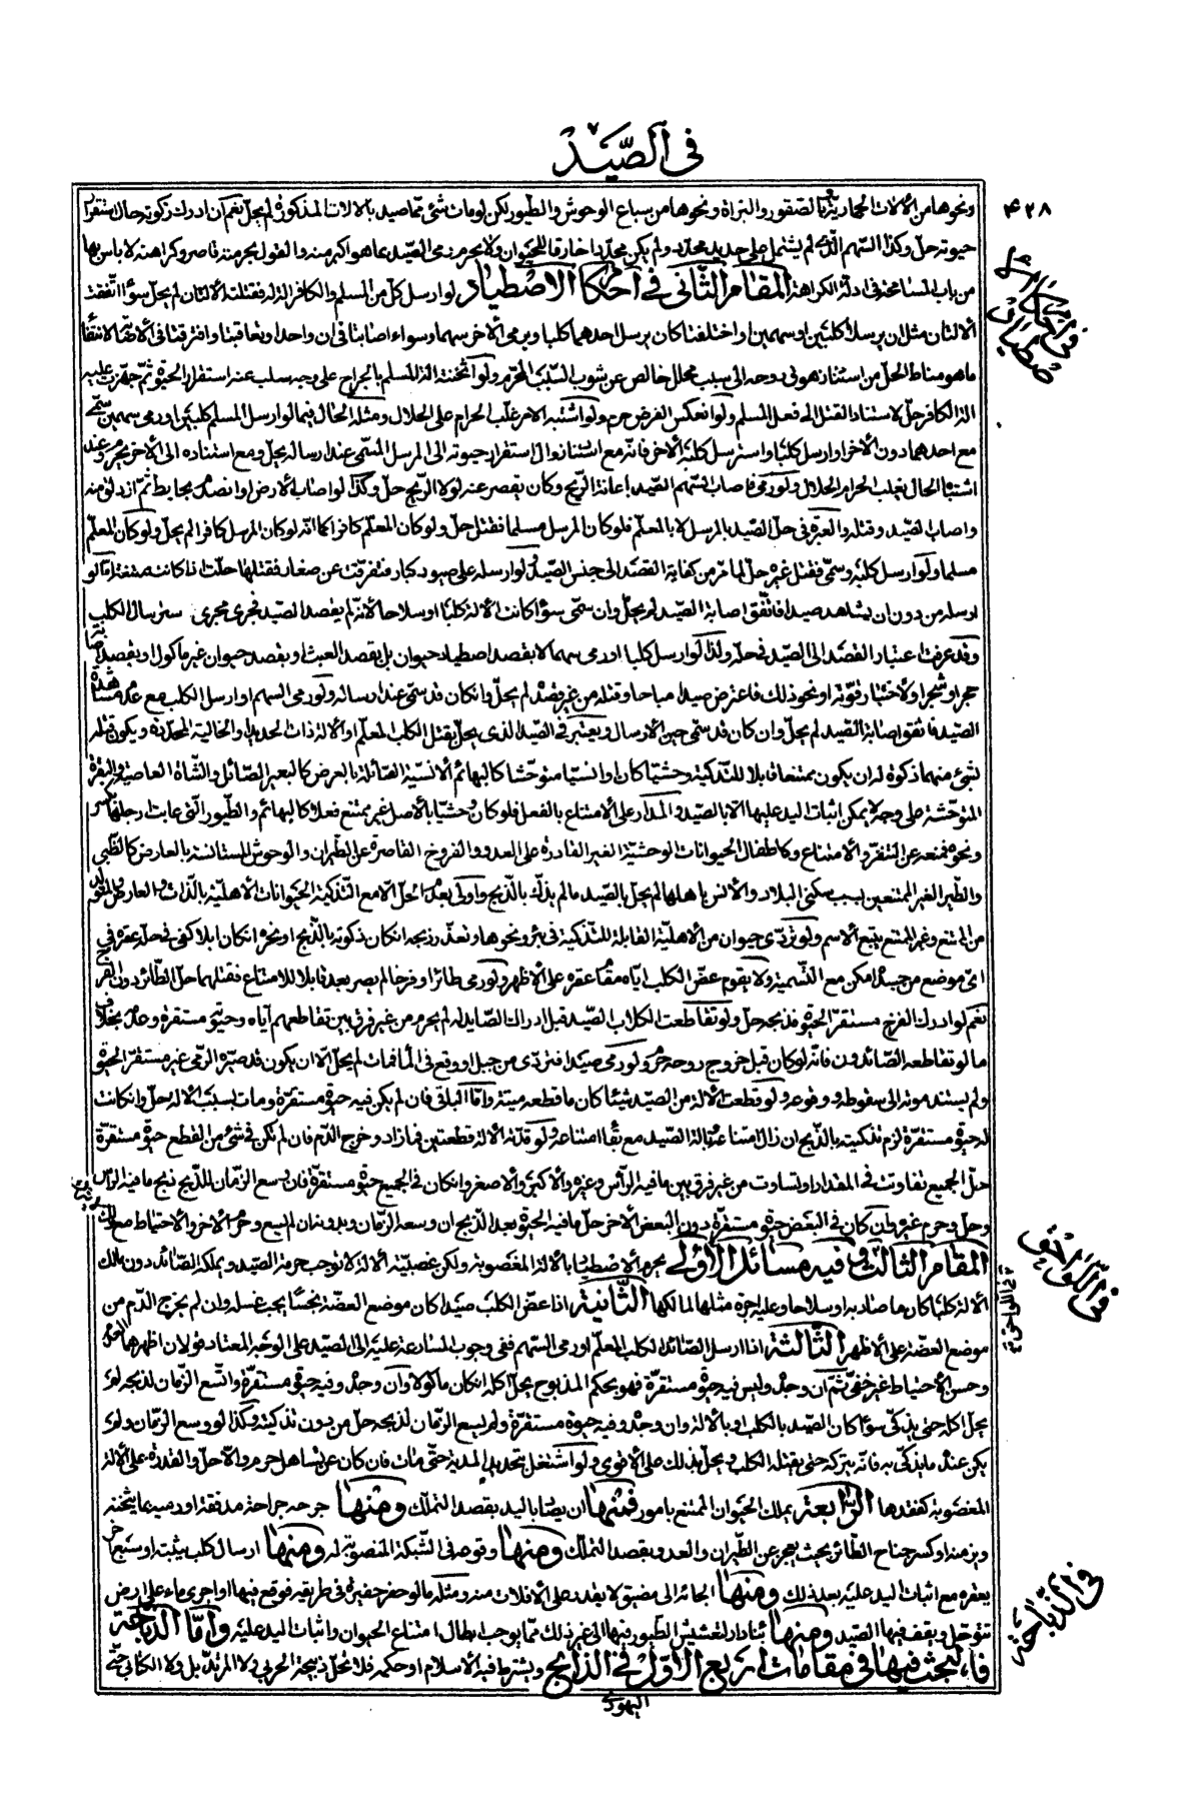 في الصّيد
۴۲۸
ونحوها من الآلات الجمادية والصقور والبزاة ونحوها من سباع الوحوش والطيور لكن لو مات شئ مما صيد بالالات المذكورة لم يحلّ نعم ان ادرك ذكوته حال استقرار
حيوته حلّ وكذا السّهم الّذي لم يشتمل على حديد محدّد ولم يكن محدّدا خارقا للحيوان ولا يحرم رمى الصّيد بما هو اكبر منه والقول بحرمته قاصر وكراهته لا باس بها
من باب المسامحة في ادلّة الكراهة المقام الثّاني في احكام الاصطياد لو ارسل كلّ من المسلم والكافر الته فقتلته الالتان لم يحلّ سواء اتّفقت
الالتان مثل ان يرسلا كلبين او سهمين او اختلفتا كان يرسل احدهما كلبا ويرمى الاخر سهما وسواء اصابتا في ان واحد او تعاقبتا وافترقتا في الاصابة لانتفاء
ما هو مناط الحلّ من استناد زهوق روحه الى سبب محلل خالص عن شوب السّبب المحرّم ولو اثخنته الة المسلم بالجراح على وجه سلب عنه استقرار الحيوة ثمّ جهزت عليه
الة الكافر حلّ لاستناد القتل الى فعل المسلم ولو انعكس الفرض حرم ولو اشتبه الامر غلّب الحرام على الحلال ومثله الحال فيما لو ارسل المسلم كلبين او رمى سهمين سمّى
مع احدهما دون الاخر او ارسل كلبا واسترسل كلبه الاخر فانّه مع استناد زوال استقرار حيوته الى المرسل المسّمى عند ارساله يحلّ ومع استناده الى الاخر يحرم وعند
اشتباه الحال يغلب الحرام الحلال ولو رمى فاصاب السّهم الصّيد باعانة الرّيح وكان يقصر عنه لولا الرّيح حلّ وكذا لو اصاب الارض او انصدم بحايط ثمّ ازدلق منه
واصاب الصّيد وقتله والعبرة في حلّ الصّيد بالمرسل لا بالمعلّم فلو كان المرسل مسلما فقتل حلّ ولو كان المعلّم كافرا كما انّه لو كان المرسل كافرا لم يحلّ ولو كان المعلّم
مسلما ولو ارسل كلبه وسمّى فقتل غيره حلّ لما مرّ من كفاية القصد الى جنس الصّيد ولو ارسله على صيود كبار فتفرّقت عن صغار فقتلها حلّت اذا كانت ممتنعة امّا لو
ارسله من دون ان يشاهد صيدا فاتّفق اصابة الصّيد لم يحلّ وان سمّى سواء كانت الالة كلبا او سلاحا لانّه لم يقصد الصّيد فجرى مجرى استرسال الكلب
وقد عرفت اعتبار القصد الى الصّيد في حلّه ولذا لو ارسل كلبا او رمى سهما لا بقصد اصطياد حيوان بل بقصد العبث او بقصد حيوان غير ماكول او بقصد اصابة
حجر او شجر او لاختبار قوّته او نحو ذلك فاعترض صيدا مباحا وقتله من غير قصد لم يحلّ وان كان قد سمّى عند ارساله ولو رمى السهم او ارسل الكلب مع عدم مشاهدة
الصّيد فاتفق اصابة الصّيد لم يحلّ وان كان قد سمّى حين الارسال ويعتبر في الصّيد الذي يحلّ بقتل الكلب المعلّم او الالة ذات الحديد او الخالية المحدّدة ويكون قتله
بشئ منهما ذكوة له ان يكون ممتنعا قابلا للتّذكية وحشيّا كان او انسيّا متوحّشا كالبهائم الانسيّة الصّائلة بالعرض كالبعير الصّائل والشّاة العاصية والبقرة
المتوحّشة على وجه لا يمكن اثبات اليد عليها الا بالصّيد والمدار على الامتناع بالفعل فلو كان وحشيّا بالاصل غير ممتنع فعلا كالبهائم والطّيور الّتي عابت ارجلها بكسر
ونحوه فمنعه عن التنفّر والامتناع وكاطفال الحيوانات الوحشيّة الغير القادرة على العدو والفروخ القاصرة عن الطّيران والوحوش المستانسة بالعارض كالظّبي
والطّير الغير الممتنعين بسبب سكنى البلاد والانس باهلها لم يحلّ بالصّيد ما لم يذكّ بالذّبح واولى بعدم الحلّ الا مع التّذكية الحيوانات الاهليّة بالذّات والعارض
من الممتنع وغير الممتنع يتبع الاسم ولو تردّى حيوان من الاهليّة القابلة للتّذكية في بئر ونحوها وتعذّر ذبحه ان كان ذكوته بالذّبح او نحره ان كان ابلا كفى في حلّه عقره في
اىّ موضع من جسده امكن مع التّسمية ولا يقوم عضّ الكلب ايّاه مقام عقره على الاظهر ولو رمى طائرا وفرخا لم يصر بعد قابلا للامتناع فقتلهما حلّ الطّائر دون الفرخ
نعم لو ادرك الفرخ مستقرّ الحيوة فذبحه حلّ ولو تقاطعت الكلاب الصّيد قبل ادراك الصّايد له لم يحرم من غير فرق بين تقاطعهم ايّاه وحيوته مستقرة وعدمه بخلاف
ما لو تقاطعه الصّائدون فانّه لو كان قبل خروج روحه حرم ولو رمى صيدا فتردّى من جبل او وقع في الماء فمات لم يحلّ الا ان يكون قد صيّره الرّمى غير مستقرّ الحيوة
ولم يستند موته الى سقوطه ووقوعه ولو قطعت الالة من الصّيد شيئا كان ما قطعه ميتة وامّا الباقي فان لم يكن فيه حيوة مستقرّة ومات بسبب الالة حلّ وان كانت
له حيوة مستقرّة لزم تذكيته بالذّبح ان زال امتناعه بالة الصّيد مع بقاء امتناعه ولو قدّته الالة قطعتين فما زاد وخرج الدّم فان لم تكن في شئ من القطع حيوة مستقرّة
حلّ الجميع تفاوتت في المقدار او تساوت من غير فرق بين ما فيه الرّأس وغيره والاكبر والاصغر وان كان في الجميع حيوة مستقرّة فان لم يسع الزّمان للذّبح ذبح ما فيه الرّاس
وحلّ وحرم غيره وان كان في البعض حيوة مستقرّة دون البعض الاخر حلّ ما فيه الحيوة بعد الذّبح ان وسعه الزّمان وبدونه ان لم يسع وحرم الاخر والاحتياط مع ذلك
المقام الثّالث وفيه مسائل الأولى يحرم الاصطياد بالالة المغصوبة ولكن غصبيّة الالة لا توجب حرمة الصّيد ويملكه الصّائد دون مالك
الالة كلبا كان ما صاد به او سلاحا وعليه اجرة مثلها لمالكها الثّانية اذا عضّ الكلب صيدا كان موضع العضّة نجسا يجب غسله وان لم يخرج الدّم من
موضع العضّة على الاظهر الثّالثة اذا ارسل الصّائد الكلب المعلّم او رمى السّهم ففي وجوب المسارعة عليه الى الصّيد على الوجه المعتاد قولان اظهرهما العدم
وحسن الاحتياط غير خفىّ ثمّ ان وجده وليس فيه حيوة مستقرّة فهو بحكم المذبوح يحلّ اكله ان كان ماكولا وان وجده وفيه حيوة مستقرّة واتّسع الزّمان لذبحه لم
يحلّ اكله حتى يذكّى سواء كان الصّيد بالكلب او بالالة وان وجده وفيه حيوة مستقرّة ولم يسع الزّمان لذبحه حلّ من دون تذكية وكذا لو وسع الزّمان ولم
يكن عنده ما يذكّى به فانّه يتركه حتى يقتله الكلب ويحلّ بذلك على الاقوى ولو اشتغل بتحديد المدية حتّى مات فان كان عن تساهل حرم والا حلّ والقدرة على الالة
المغصوبة كفقدها الرّابعة يملك الحيوان الممتنع بامور فمنها ان يصاب باليد بقصد التملّك ومنها جرحه جراحة مدفّفة او رميه بما يثخنه
ويزمنه او كسر جناح الطّائر بحيث يعجز عن الطّيران والعدو بقصد التملّك ومنها وقوعه في الشّبكة المنصوبة له ومنها ارسال كلب يثبته او سبع اخر
يعقره مع اثبات اليد عليه بعد ذلك ومنها الجائه الى مضيق لا يقدر على الافلات منه ومثله ما لو حفر حفيرة في طريقه فوقع فيها او اجرى ماء على ارض
تتوحّل ويقف فيها الصّيد ومنها بناء دار لتعشيش الطّيور فيها الى غير ذلك ممّا يوجب ابطال امتناع الحيوان واثبات اليد عليه وامّا الذّباحة
فالبحث فيها في مقامات اربع الاوّل في الذّابح ويشترط فيه الاسلام او حكمه فلا تحلّ ذبيحة الحربي ولا المرتدّ بل ولا الكتابي حتّى
اليهودى
في احكام الاصطياد
في اللّواحق
في الذّباحة